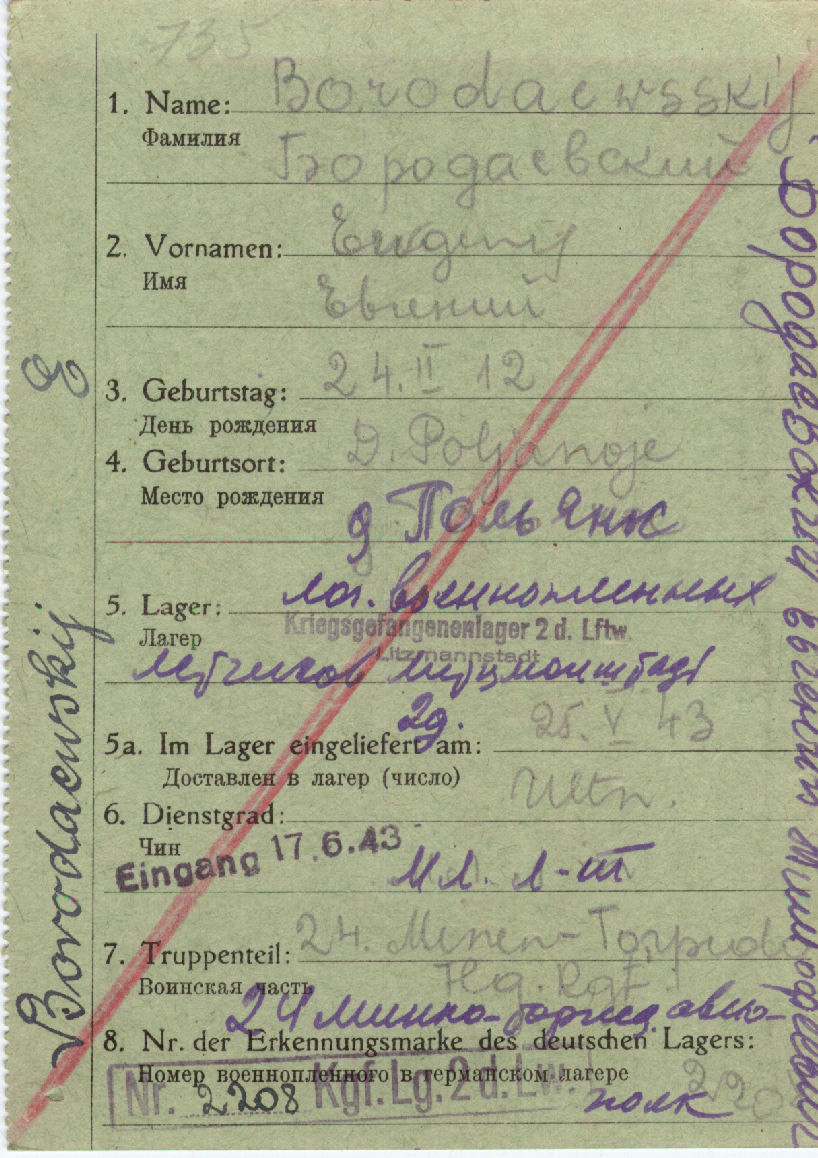 735
1. Name: Borodaewsskij
Фамилия
Бородаевский
2. Vornamen: Ewgenij
Имя
Евгений
3. Geburtstag: 24.II 12
День рождения
4. Geburtsort: D. Poljanoje
Место рождения
д Польянк
5. Lager: лаг. военнопленных
Kriegsgefangenenlager 2 d. Lftw.
Лагер
Litzmannstadt
летчиков
2д.
5a. Im Lager eingeliefert am: 25. V 43
Доставлен в лагер (число)
6. Dienstgrad: Ultn.
Чин
Eingang 17.6.43
мл. л-т
7. Truppenteil: 24. Minen-Torpedo
Воинская часть Flg. Rgt.
24 минно-торпед авио-
8. Nr. der Erkennungsmarke des deutschen Lagers:
Номер военнопленного в германском лагере
Nr. 2208 Kgf. Lg. 2 d. Lw.
полк
Borodaewskij E
Бородаевский Евгений